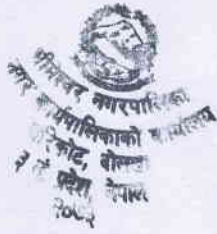 भीमेश्वर नगरपालिका
नगर कार्यपालिकाको कार्यालय
चरिकोट, दोलखा
३ नं प्रदेश, नेपाल
२०७३